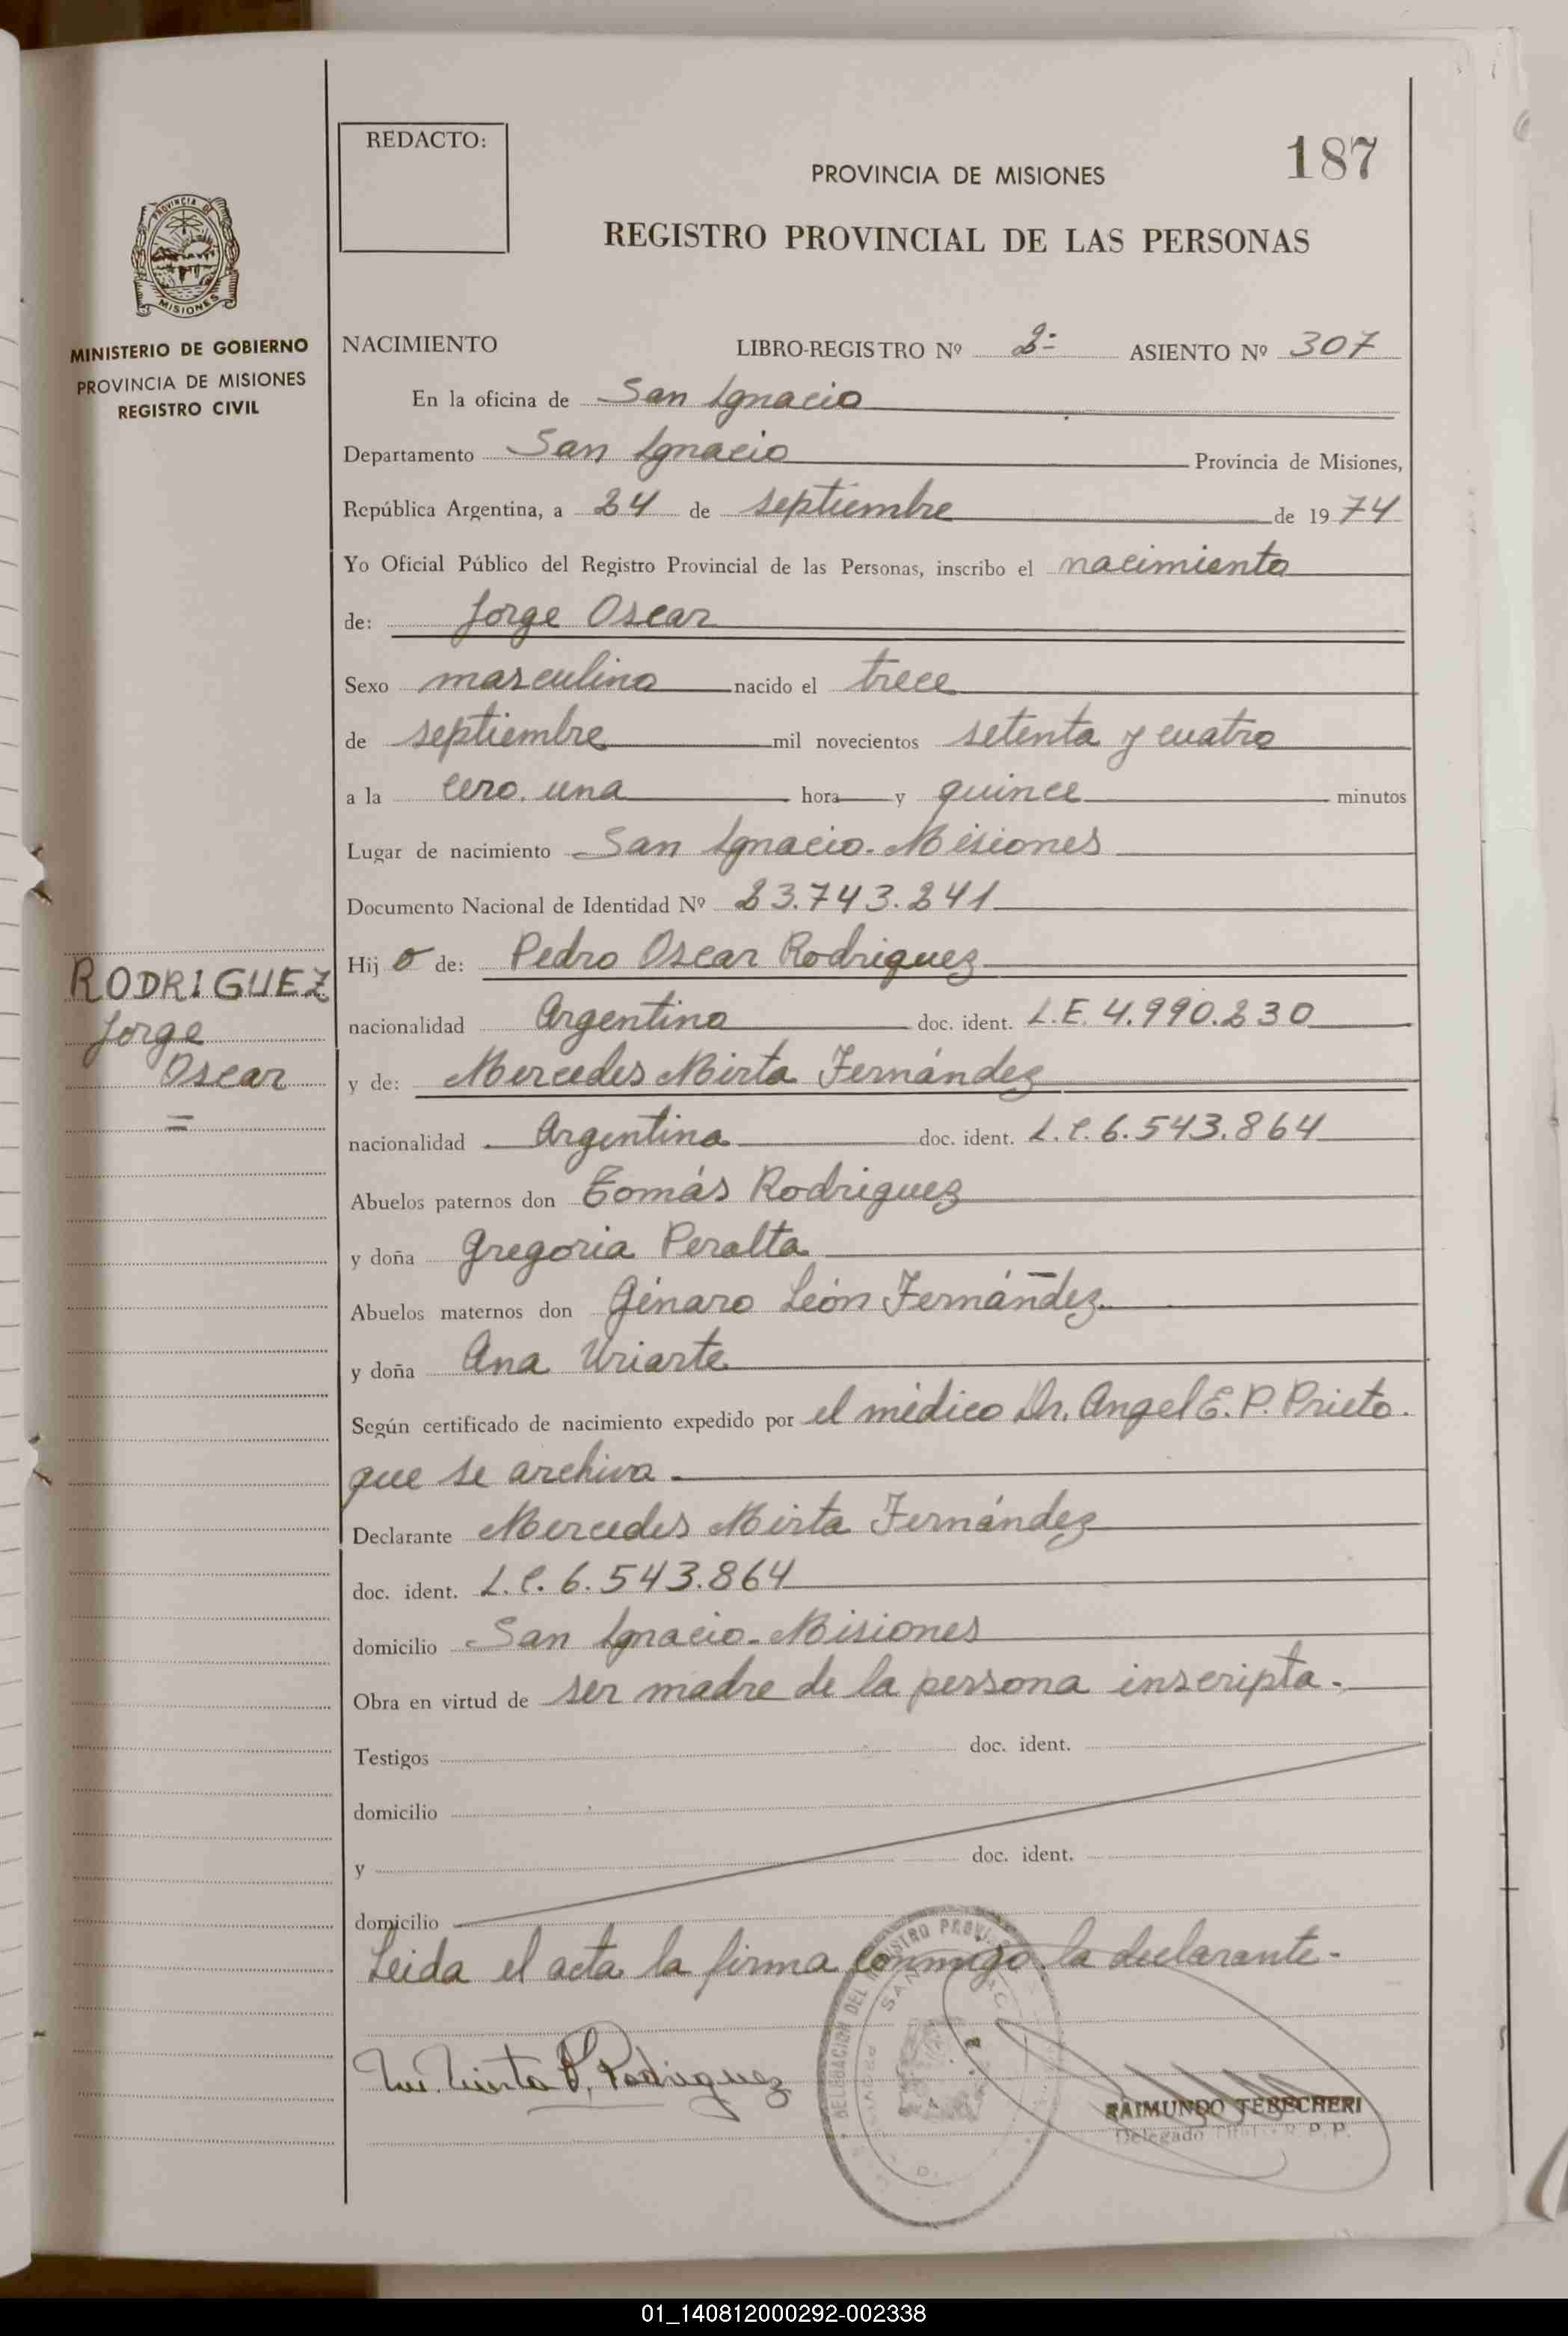 REDACTO:
187
PROVINCIA DE MISIONES
REGISTRO PROVINCIAL DE LAS PERSONAS
PROVINCIA DE
MISIONES
MINISTERIO DE GOBIERNO
PROVINCIA DE MISIONES
REGISTRO CIVIL
NACIMIENTO LIBRO-REGISTRO Nº 2º ASIENTO Nº 307
En la oficina de San Ignacio
Departamento San Ignacio Provincia de Misiones,
República Argentina, a 24 de septiembre de 1974
Yo Oficial Público del Registro Provincial de las Personas, inscribo el nacimiento
de: Jorge Oscar
Sexo masculino nacido el trece
de septiembre mil novecientos setenta y cuatro
a la cero una hora y quince minutos
Lugar de nacimiento San Ignacio. Misiones
Documento Nacional de Identidad Nº 23.743.241
RODRIGUEZ
Jorge
Oscar
=
Hijo de: Pedro Oscar Rodriguez
nacionalidad Argentino doc. ident. L.E. 4.990.230
y de: Mercedes Mirta Fernández
nacionalidad Argentina doc. ident. L.C. 6.543.864
Abuelos paternos don Tomás Rodriguez
y doña Gregoria Peralta
Abuelos maternos don Génaro León Fernández
y doña Ana Uriarte
Según certificado de nacimiento expedido por el médico Dr. Angel E. P. Prieto.
que se archiva.
Declarante Mercedes Mirta Fernández
doc. ident. L.C. 6.543.864
domicilio San Ignacio. Misiones
Obra en virtud de ser madre de la persona inscripta.
Testigos doc. ident.
domicilio
y doc. ident.
domicilio
Leida el acta la firma conmigo la declarante.
DELEGACION DEL REGISTRO
Rodriguez
RAIMUNDO TEBECHERI
Delegado
01_140812000292-002338